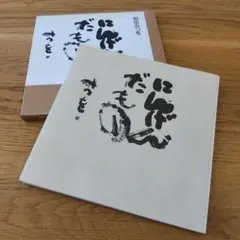 にんげん
だもの
みつを。
にんげん
だもの
みつを。